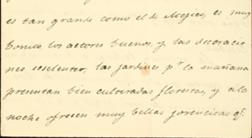 es tan grande como el de Mejico, es muy
bonito los actores buenos, y las decoracio
nes exelentes, los jardines pr la mañana
presentan bien cultivadas floricas, y a la
noche ofrecen muy bellas